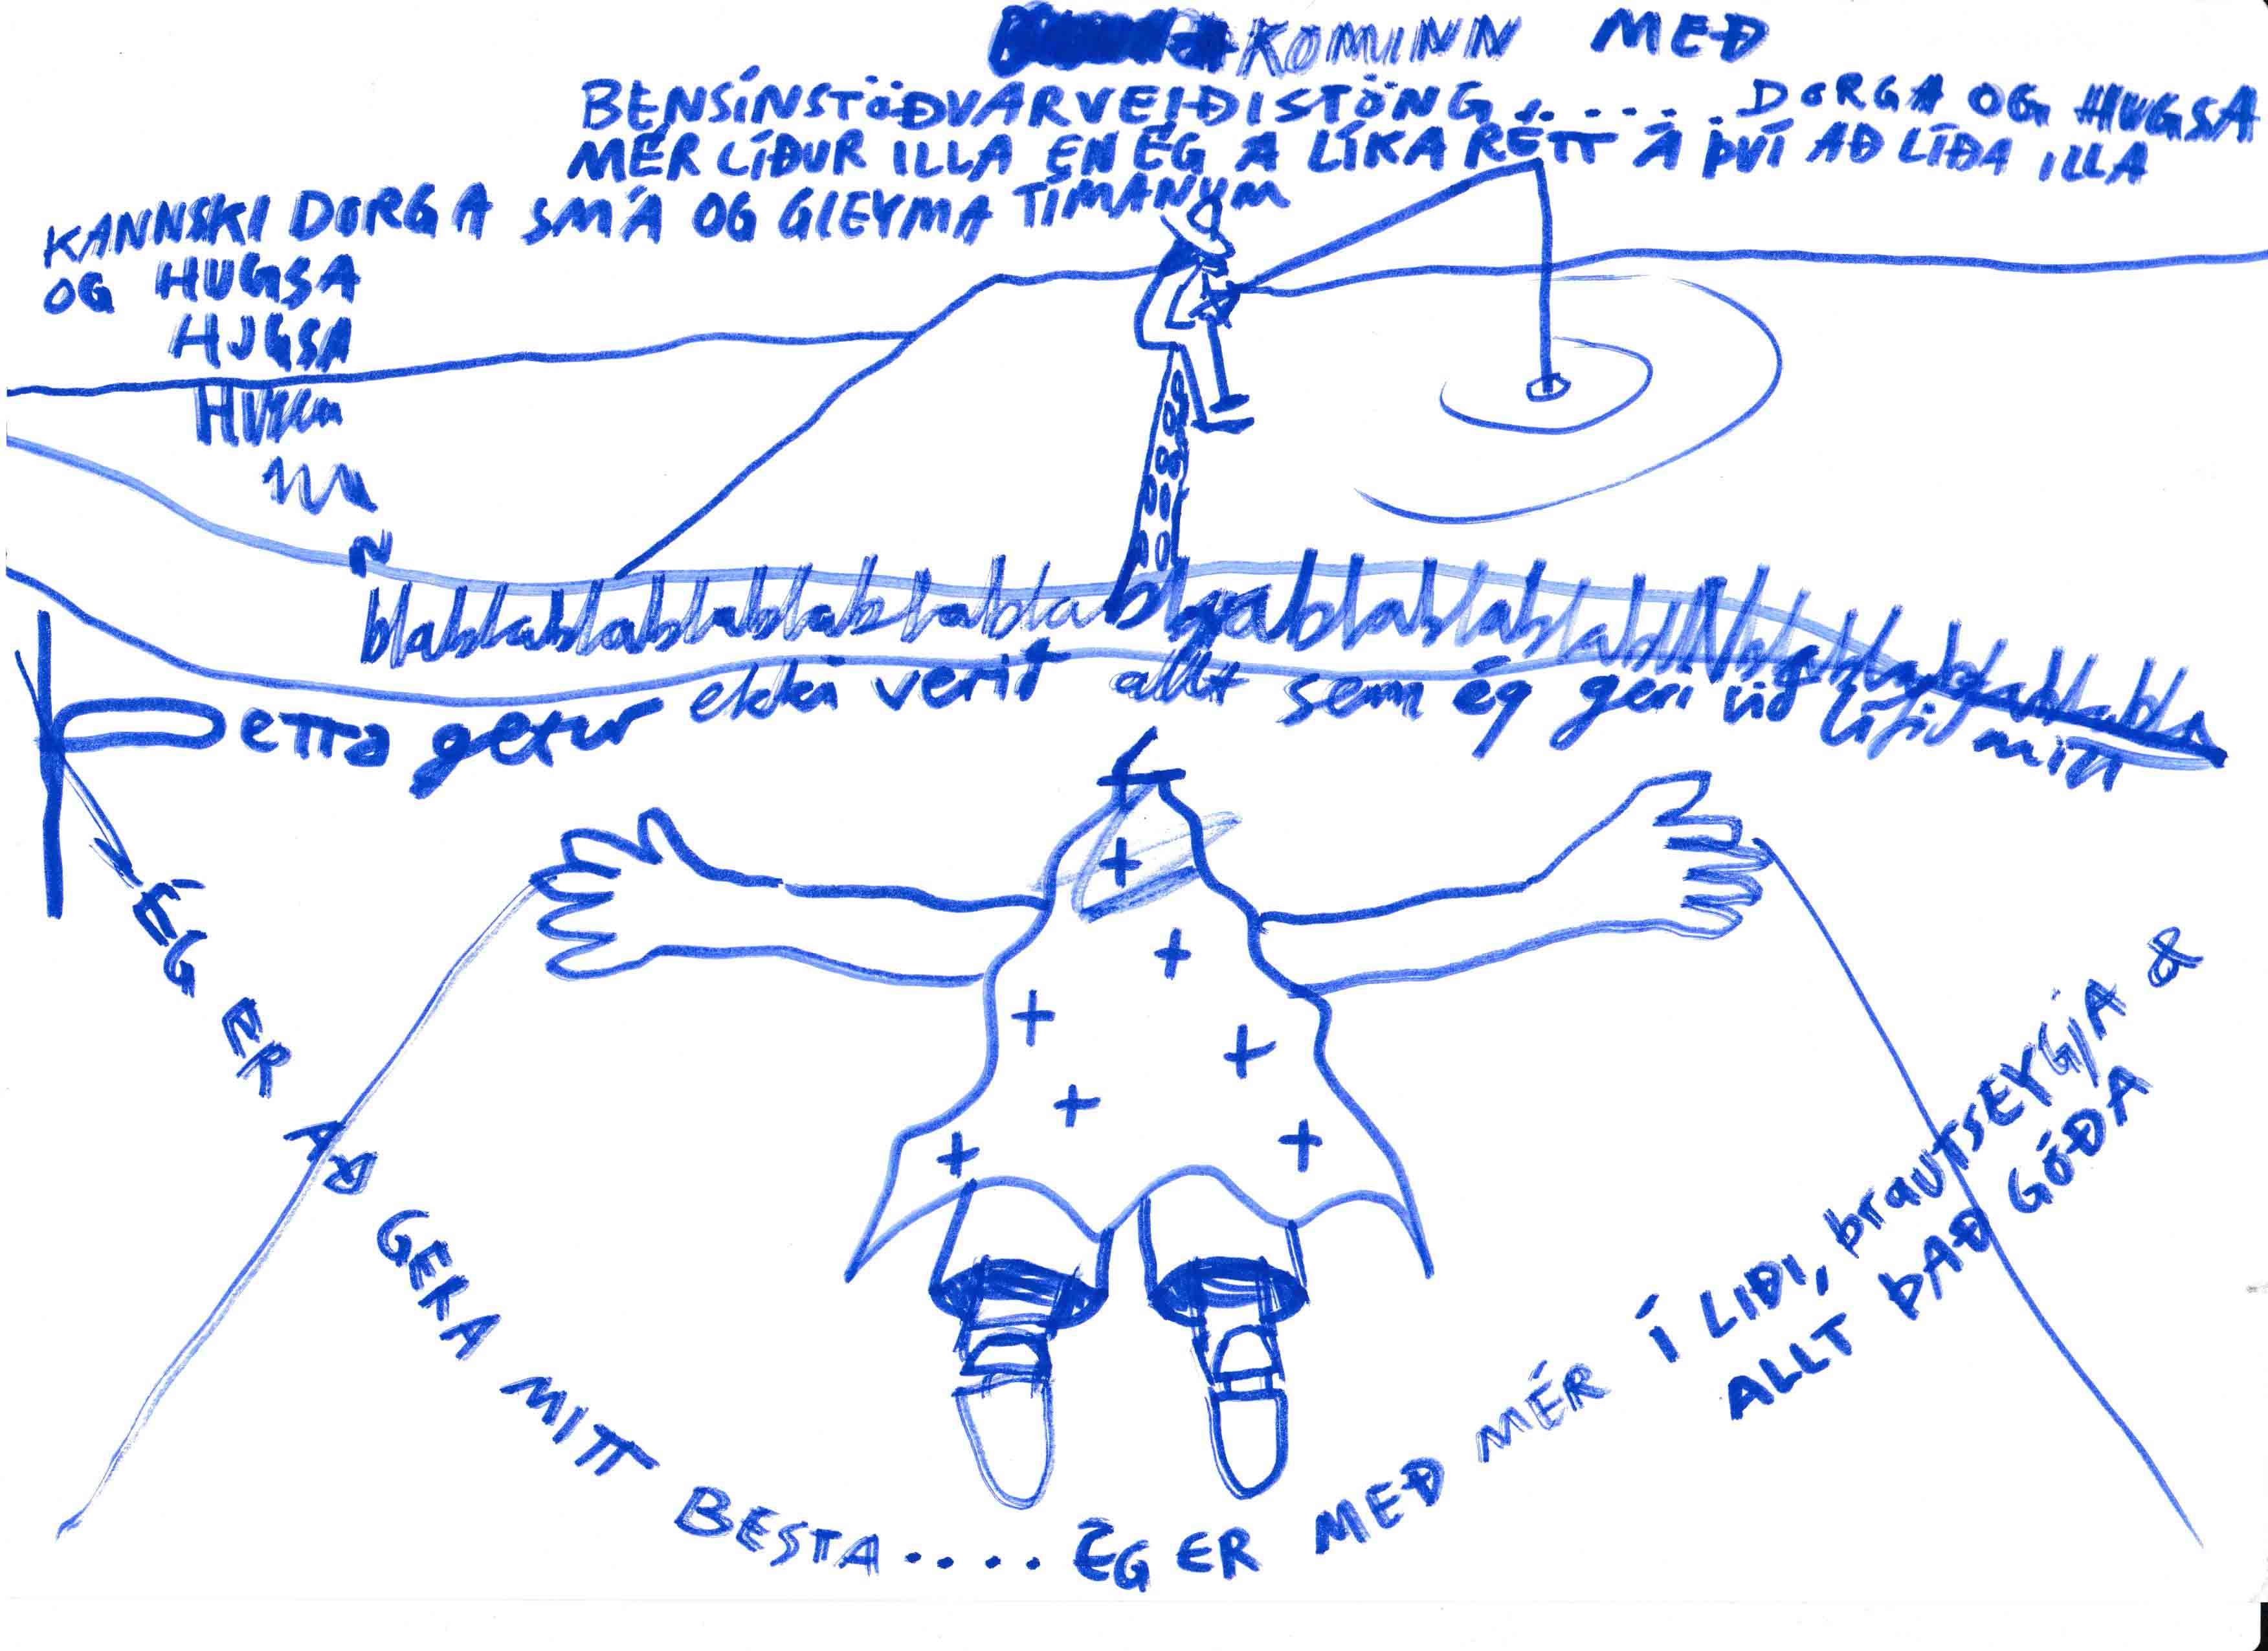 KOMINN MEÐ
BENSÍNSTÖÐVARVEIÐISTÖNG...... DORGA OG HUGSA
MÉR LÍÐUR ILLA EN ÉG Á LÍKA RÉTT Á ÞVÍ AÐ LÍÐA ILLA
KANNSKI DORGA SMÁ OG GLEYMA TÍMANUM
OG HUGSA
HUGSA
blablablablablablablablablablablablablablablabla
Þetta getur ekki verið allt sem ég geri við lífið mitt
ÉG ER AÐ GERA MITT BESTA..... ÉG ER MEÐ MÉR Í LIÐI, brautSEYGJA &
ALLT ÞAÐ GÓÐA